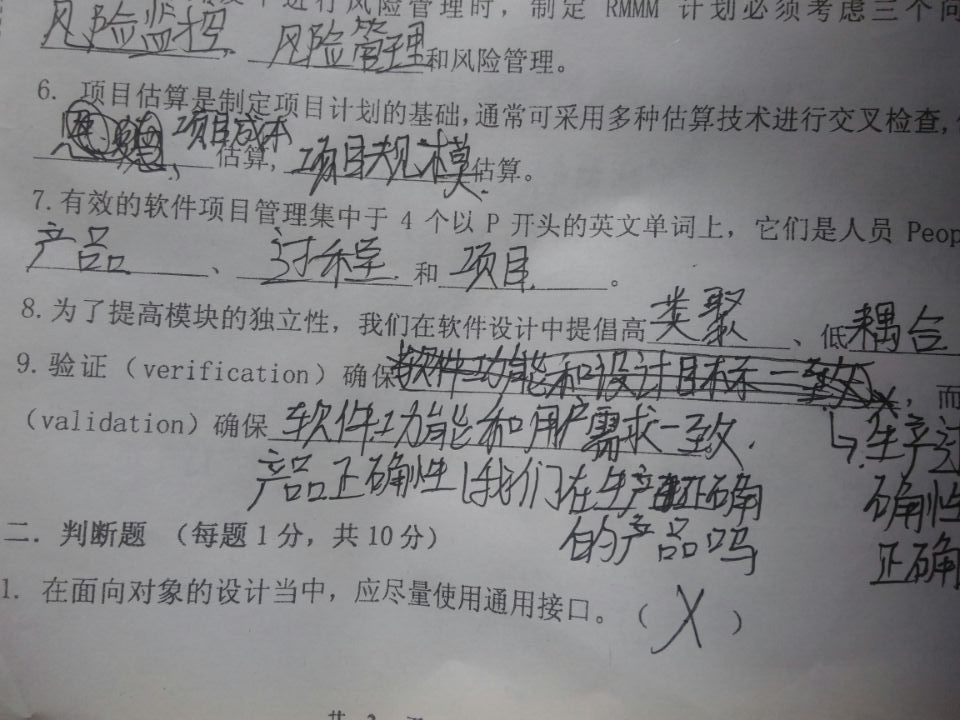 进行风险管理时，制定 RMMM 计划必须考虑三个问
风险监控 风险管理和风险管理。
6. 项目估算是制定项目计划的基础,通常可采用多种估算技术进行交叉检查,
项目成本估算, 项目规模估算。
7.有效的软件项目管理集中于 4 个以 P 开头的英文单词上，它们是人员 Peop
产品、过程和项目。
8.为了提高模块的独立性，我们在软件设计中提倡高类聚、低耦合
9.验证（verification）确保软件功能和设计目标一致，而
(validation）确保软件功能和用户需求一致.
生产过
产品正确性 我们在生产正确
确性
的产品吗
正确
二．判断题 （每题 1 分，共 10 分）
1. 在面向对象的设计当中，应尽量使用通用接口。（X）